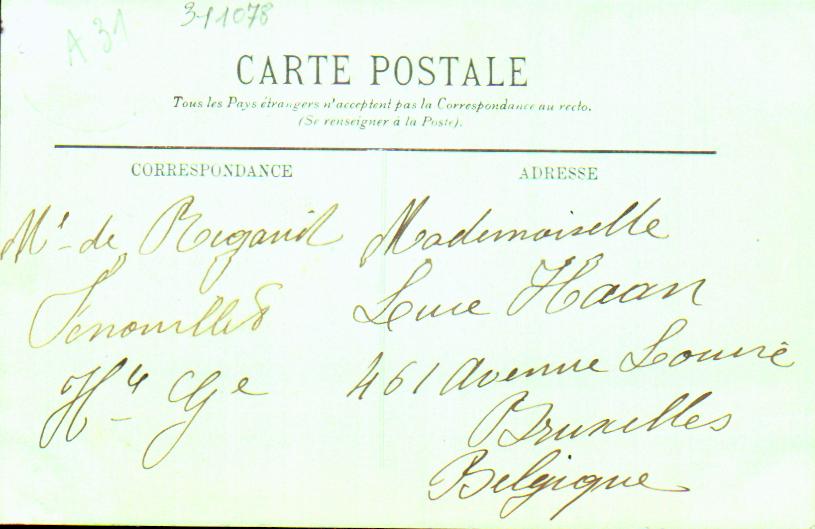 A 31
311078
CARTE POSTALE
Tous les Pays étrangers n'acceptent pas la Correspondance au recto.
(Se renseigner à la Poste).
CORRESPONDANCE
Mr de Rigaud
Fenouillet
Hte Gne
ADRESSE
Mademoiselle
Luce Haan
461 Avenue Louise
Bruxelles
Belgique